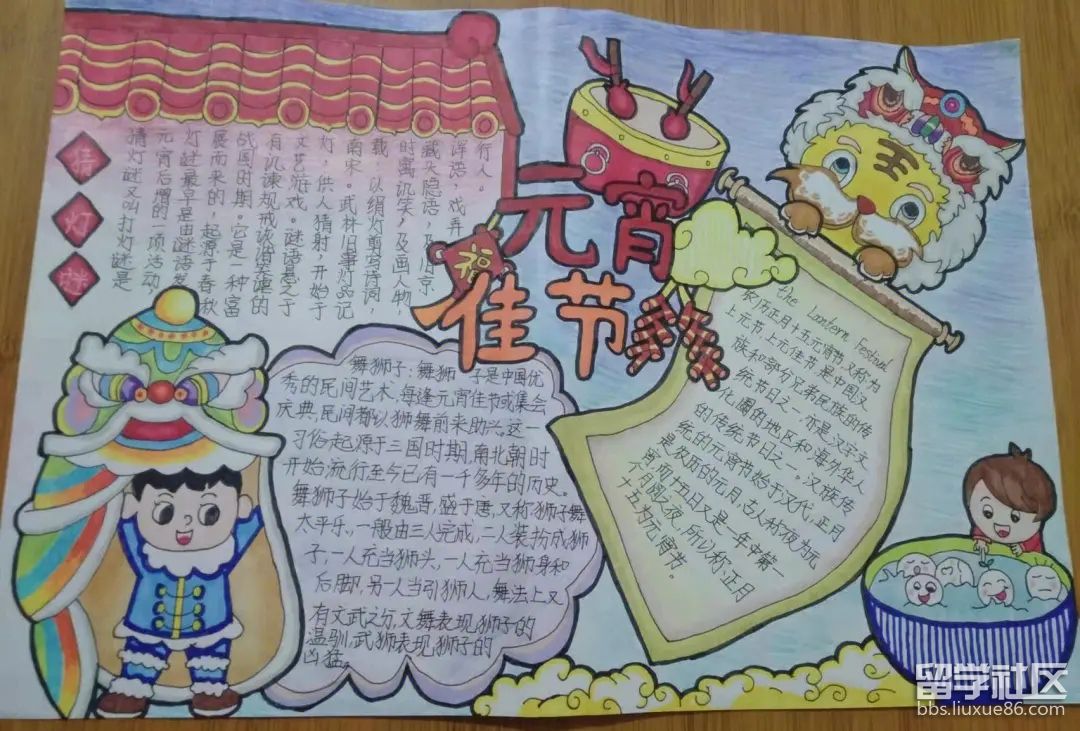 猜灯谜
猜灯谜又叫打灯谜是
元宵后增的一项活动
灯谜最早是由谜语发
展而来的，起源于春秋
战国时期。它是一种富
有讥谏规戒诙谐笑谑的
文艺游戏。谜语悬之于
灯，供人猜射，开始于
南宋。武林旧事灯品记
载，以绢灯剪写诗词，
时寓讥笑，及画人物，
藏头隐语，及旧京
诨语，戏弄
行人。
元宵
佳节
福
王
舞狮子：舞狮子是中国优
秀的民间艺术，每逢元宵佳节或集会
庆典，民间都以狮舞前来助兴。这一
习俗起源于三国时期，南北朝时
开始流行至今已有一千多年的历史。
舞狮子始于魏晋，盛于唐，又称狮子舞
太平乐，一般由三人完成，二人装扮成狮
子，一人充当狮头，一人充当狮身和
后脚，另一人当引狮人，舞法上又
有文武之分，文舞表现狮子的
温驯，武狮表现狮子的
凶猛。
the Lantern Festival
农历正月十五元宵节又称为
上元节，上元佳节是中国汉
族和部分兄弟民族的传
统节日之一，亦是汉字文
化圈的地区和海外华人
的传统节日之一。汉族传
统的元宵节始于汉代，正月
是农历的元月，古人称夜为元
宵，而十五日又是一年中第一
个月圆之夜，所以称正月
十五为元宵节。
留学社区
bbs.liuxue86.com